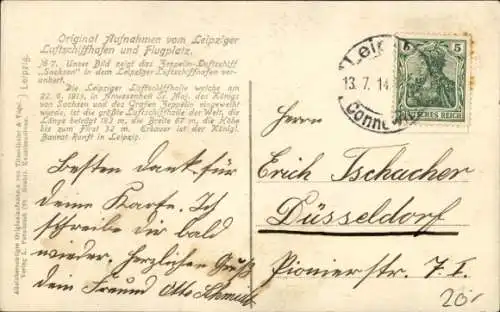 Original Aufnahmen vom Leipziger
Luftschiffhafen und Flugplatz.
№ 7. Unser Bild zeigt das Zeppelin-Luftschiff
„Sachsen" in dem Leipziger Luftschiffhafen ver-
ankert.
Die Leipziger Luftschiffhalle welche am
22. 6. 1913, in Anwesenheit Sr. Maj. des Königs
von Sachsen und des Grafen Zeppelin eingeweiht
wurde, ist die größte Luftschiffhalle der Welt, die
Länge beträgt 193 m, die Breite 67 m, die Höhe
bis zum First 32 m. Erbauer ist der Königl.
Baurat Ranft in Leipzig.
Leipzig.
Verlag
Leip
13. 7. 14.
Conne
5
5
DEUTSCHES REICH
besten Dank für
Deine Karte. Ich
schreibe Dir bald
wieder. Herzlichen Gruß
Dein Freund Otto
Erich Tschacher
Düsseldorf
Pionierstr. 7. I.
20.-